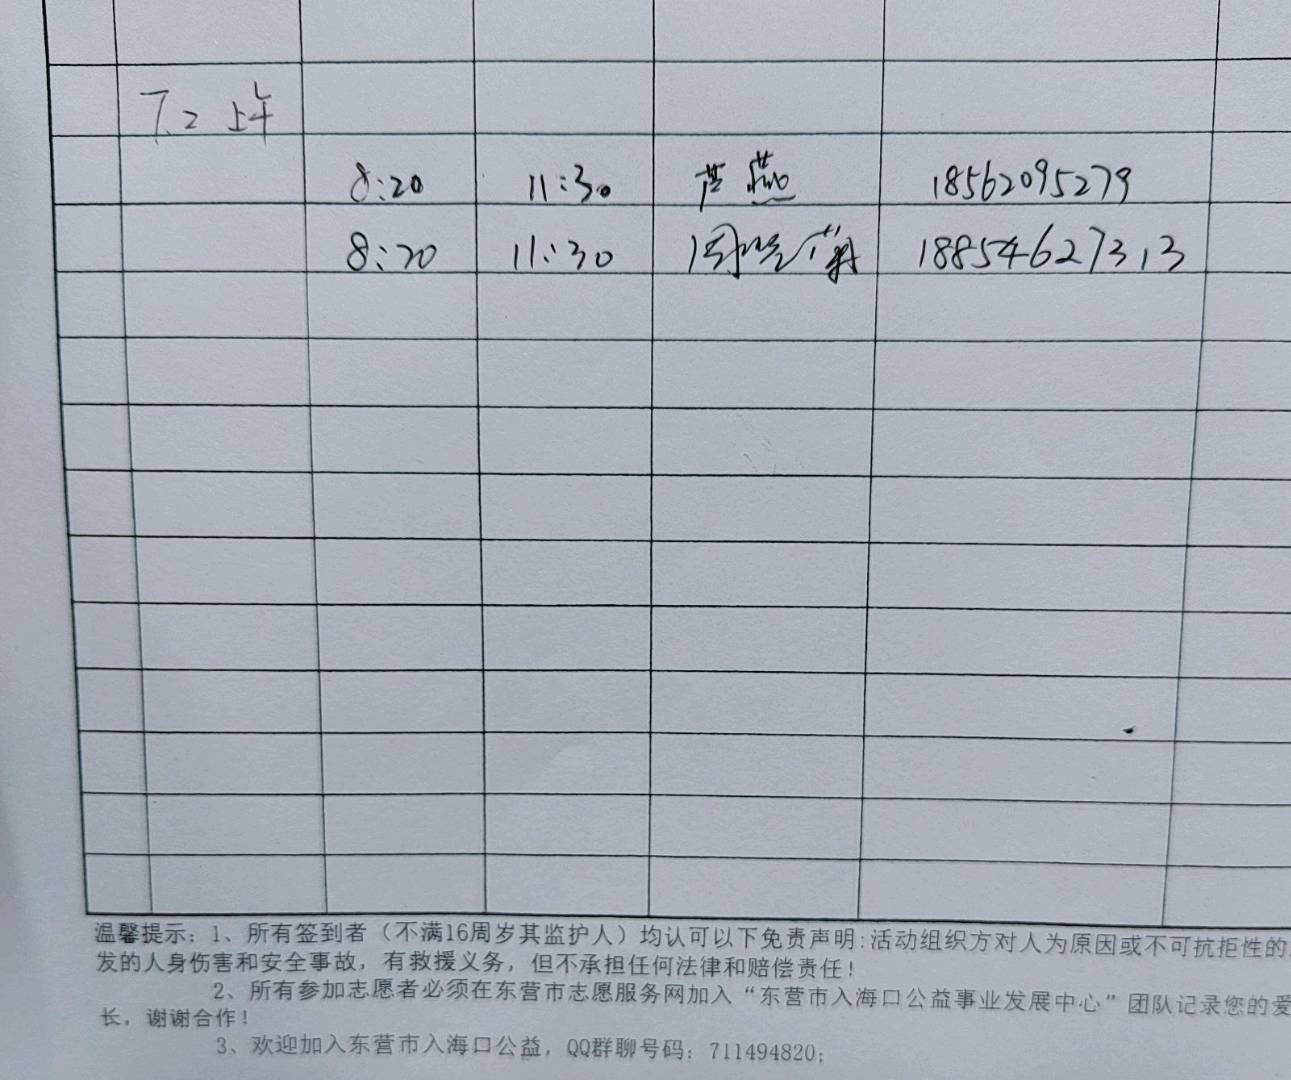 7.2 上午
8:20 11:30 芦燕 18562095279
8:20 11:30 周晓菊 18854627313
温馨提示：1、所有签到者（不满16周岁其监护人）均认可以下免责声明:活动组织方对人为原因或不可抗拒性的
发的人身伤害和安全事故，有救援义务，但不承担任何法律和赔偿责任！
2、所有参加志愿者必须在东营市志愿服务网加入“东营市入海口公益事业发展中心”团队记录您的爱
长，谢谢合作！
3、欢迎加入东营市入海口公益，QQ群聊号码：711494820；